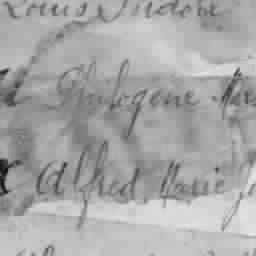 Louis Isidore
Philogene Mar
Alfred Marie Jo